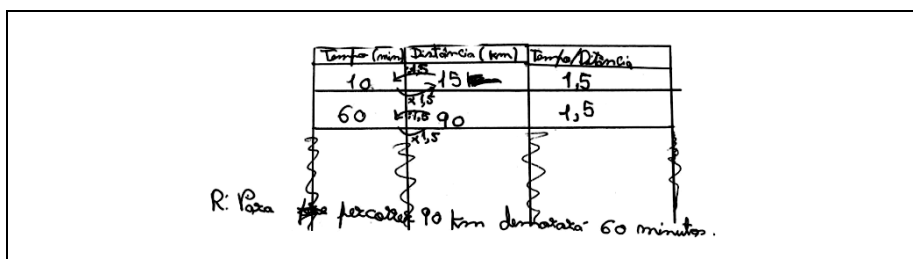 Tempo (min) Distância (km) Tempo/Ditância
:1,5
10 15 1,5
x1,5
:1,5
60 90 1,5
x1,5
R: Para percorrer 90 km demorará 60 minutos.